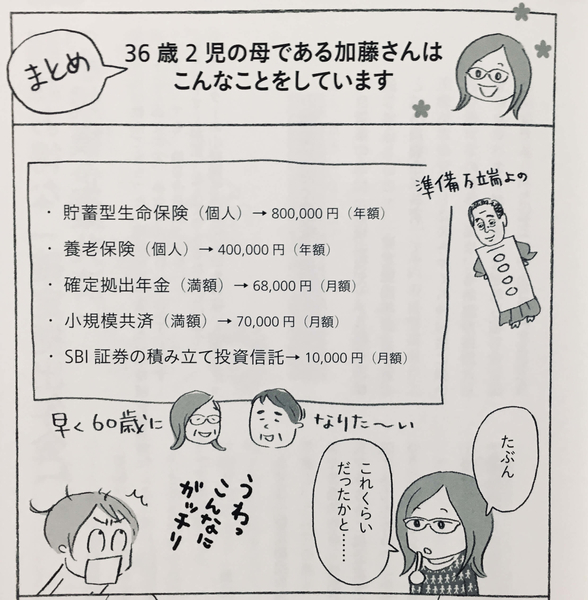 まとめ
36歳2児の母である加藤さんは
こんなことをしています
準備万端よの
・貯蓄型生命保険（個人）→800,000円（年額）
・養老保険（個人）→400,000円（年額）
・確定拠出年金（満額）→68,000円（月額）
・小規模共済（満額）→70,000円（月額）
・SBI証券の積み立て投資信託→10,000円（月額）
早く60歳に
なりた〜い
たぶん
これくらい
だったかと……
うわっ
こんなに
ガッチリ